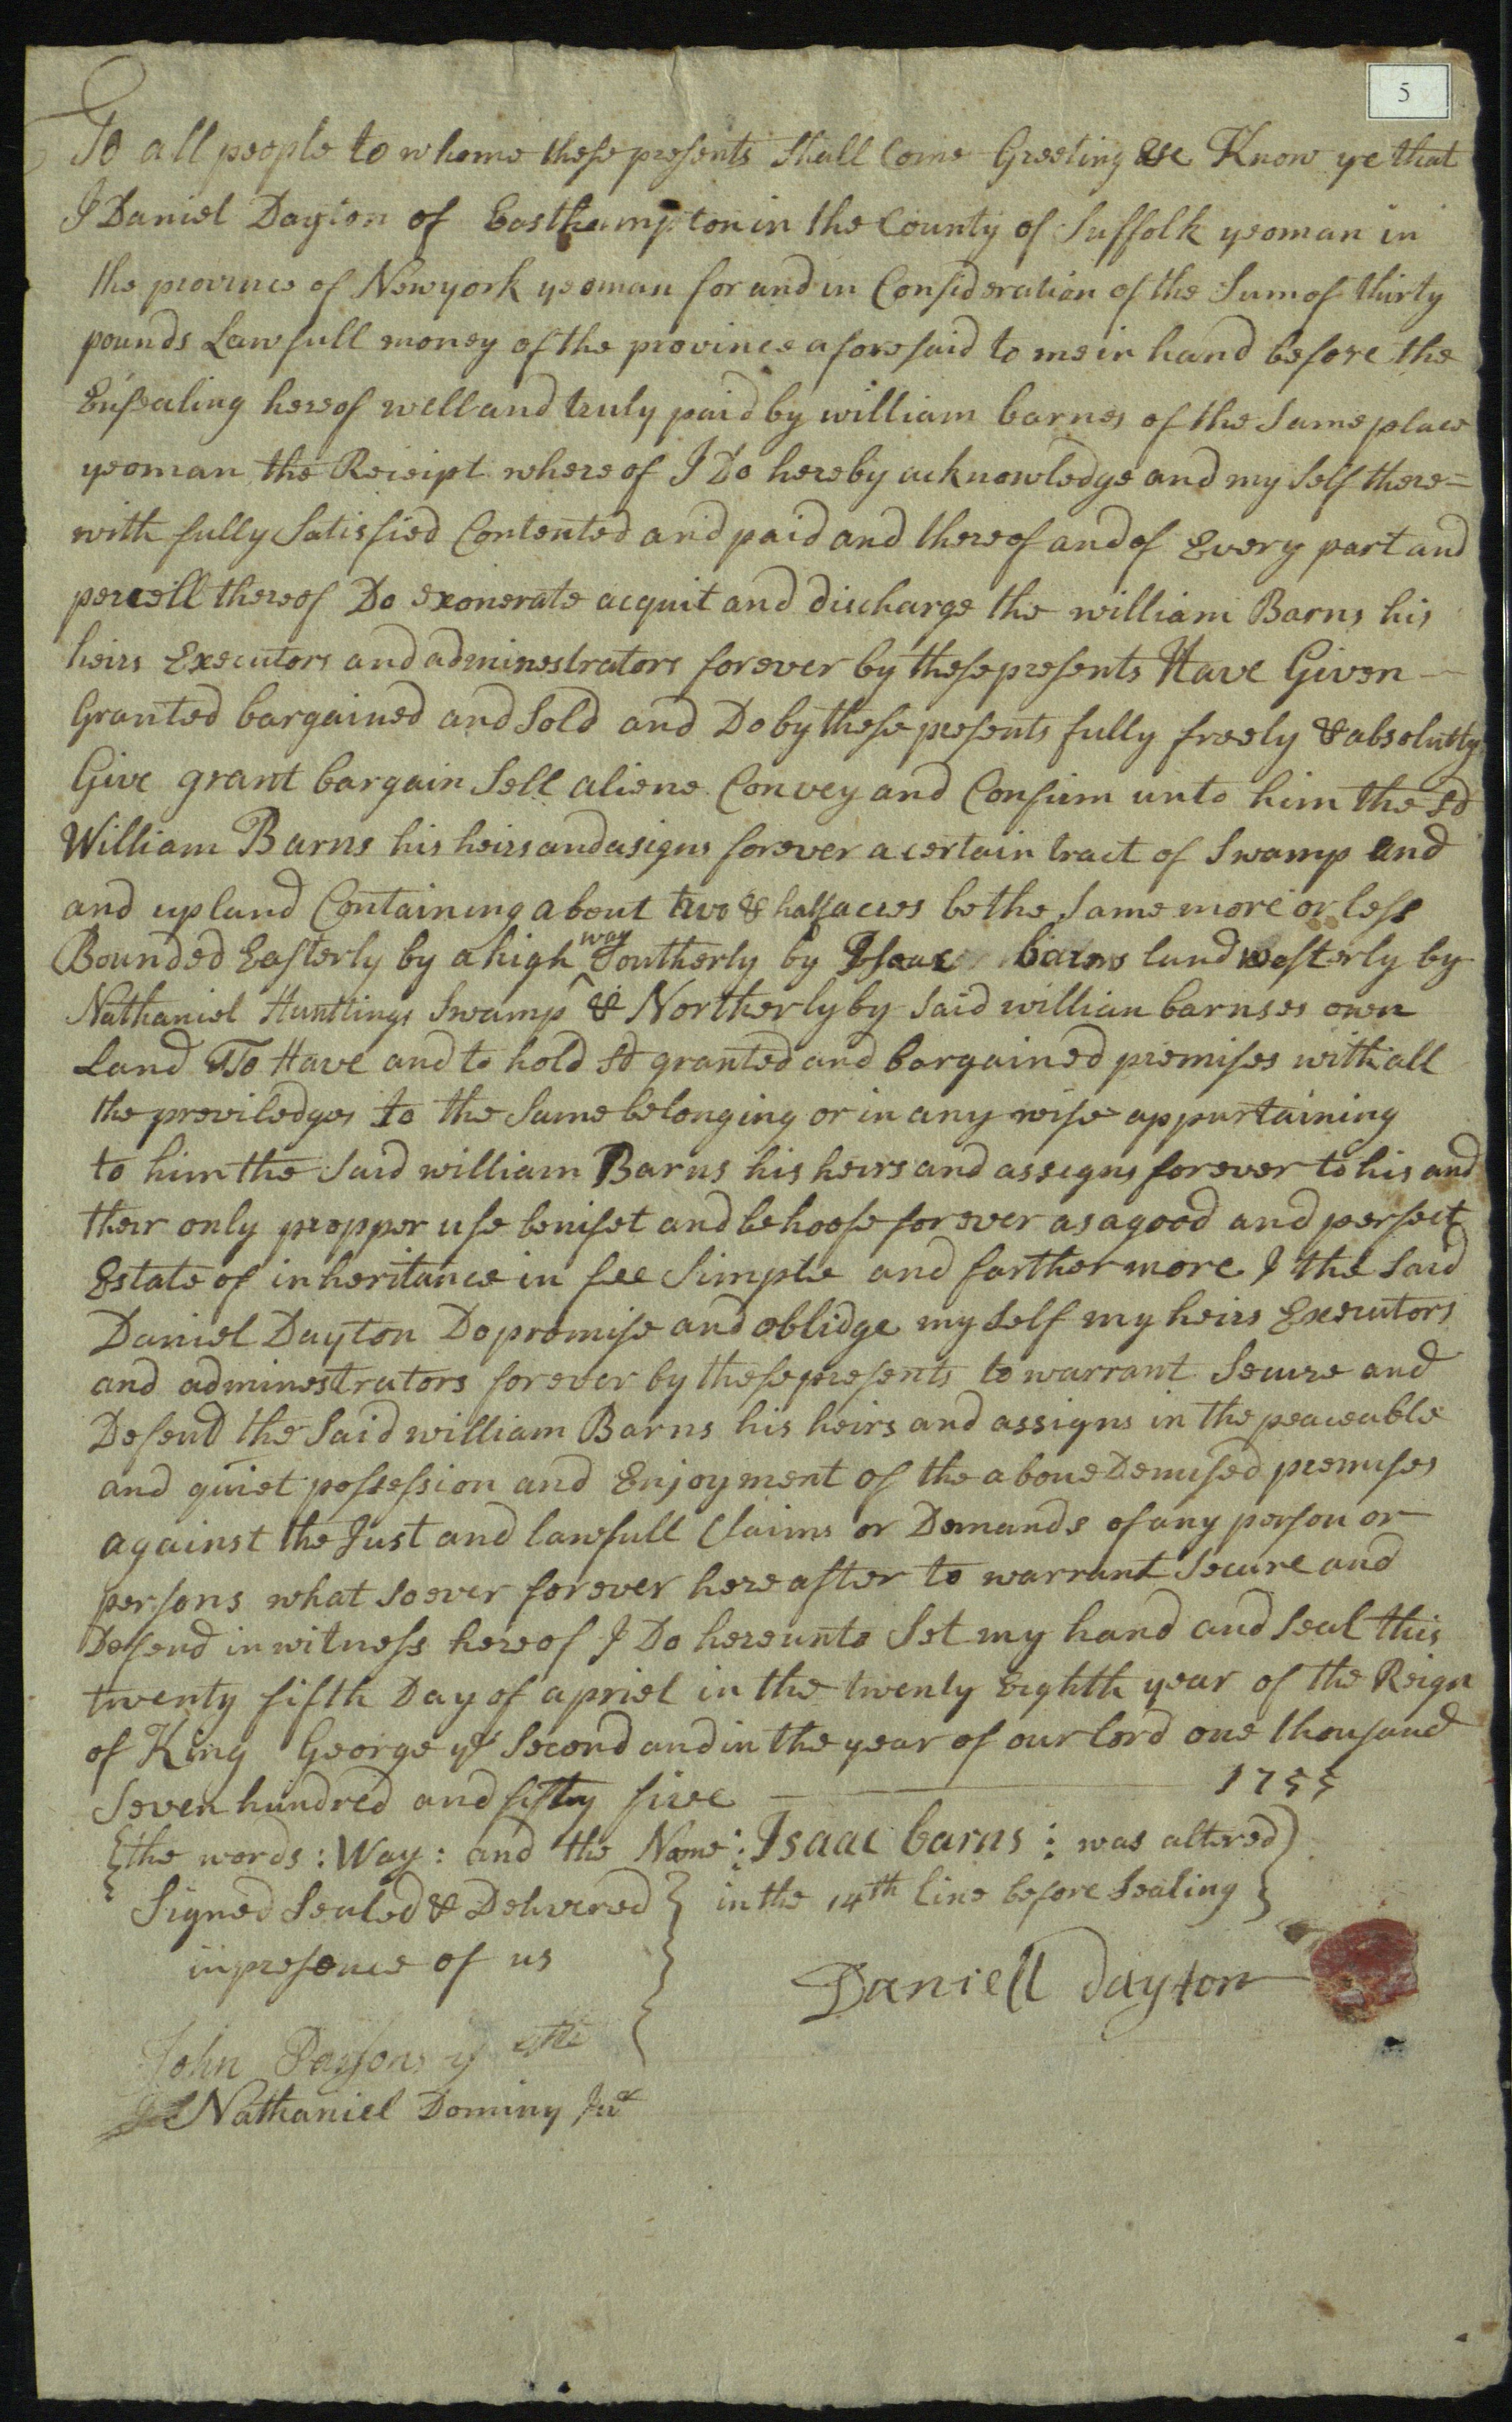 5
To all people to whome these presents shall Come Greeting &c Know ye that
I Daniel Dayton of Easthampton in the County of Suffolk yeoman in
the province of Newyork yeoman for and in Consideration of the Sum of thirty
pounds Lawfull money of the province aforesaid to me in hand before the
Ensealing hereof well and truly paid by william barnes of the Same place
yeoman the Receipt where of I Do hereby acknowledge and my Self there=
with fully Satisfied Contented and paid and thereof and of Every part and
percell thereof Do exonerate acquit and discharge the william Barns his
heirs Executors and adminestrators forever by these presents Have Given
Granted bargained and Sold and Do by these presents fully freely & absolutty
Give grant bargain Sell aliene Convey and Confirm unto him the Sd
William Barns his heirs and asigns forever a certain tract of Swamp and
and upland Containing about two & half acres be the Same more or less
Bounded Easterly by a high way Southerly by Isaac barns land westerly by
Nathaniel Huntting Swamp & Northerly by Said willian barnses own
Land To Have and to hold Sd granted and bargained premises with all
the previledges to the Same belonging or in any wise appurtaining
to him the Said william Barns his heirs and assigns forever to his and
their only propper use benifet and behoofe forever as a good and perfect
Estate of inheritance in fee Simple and farthermore I the Said
Daniel Dayton Do promise and oblidge my Self my heirs Executors
and adminestrators forever by these presents to warrant Secure and
Defend the Said william Barns his heirs and assigns in the peaceable
and quiet possession and Enjoyment of the above Demised premises
against the Just and lawfull Claims or Demands of any person or
persons what soever forever here after to warrant Secure and
Defend in witness hereof I Do hereunto Set my hand and Seal this
twenty fifth Day of apriel in the twenty Eighth year of the Reign
of King George ye Second and in the year of our lord one thousand
Seven hundred and fifty five 1755
the words : Way : and the Name : Isaac barns : was altered
in the 14th line before Sealing
Signed Sealed & Delivered
in presence of us
Daniell Dayton
John
Nathaniel Dominy Jur